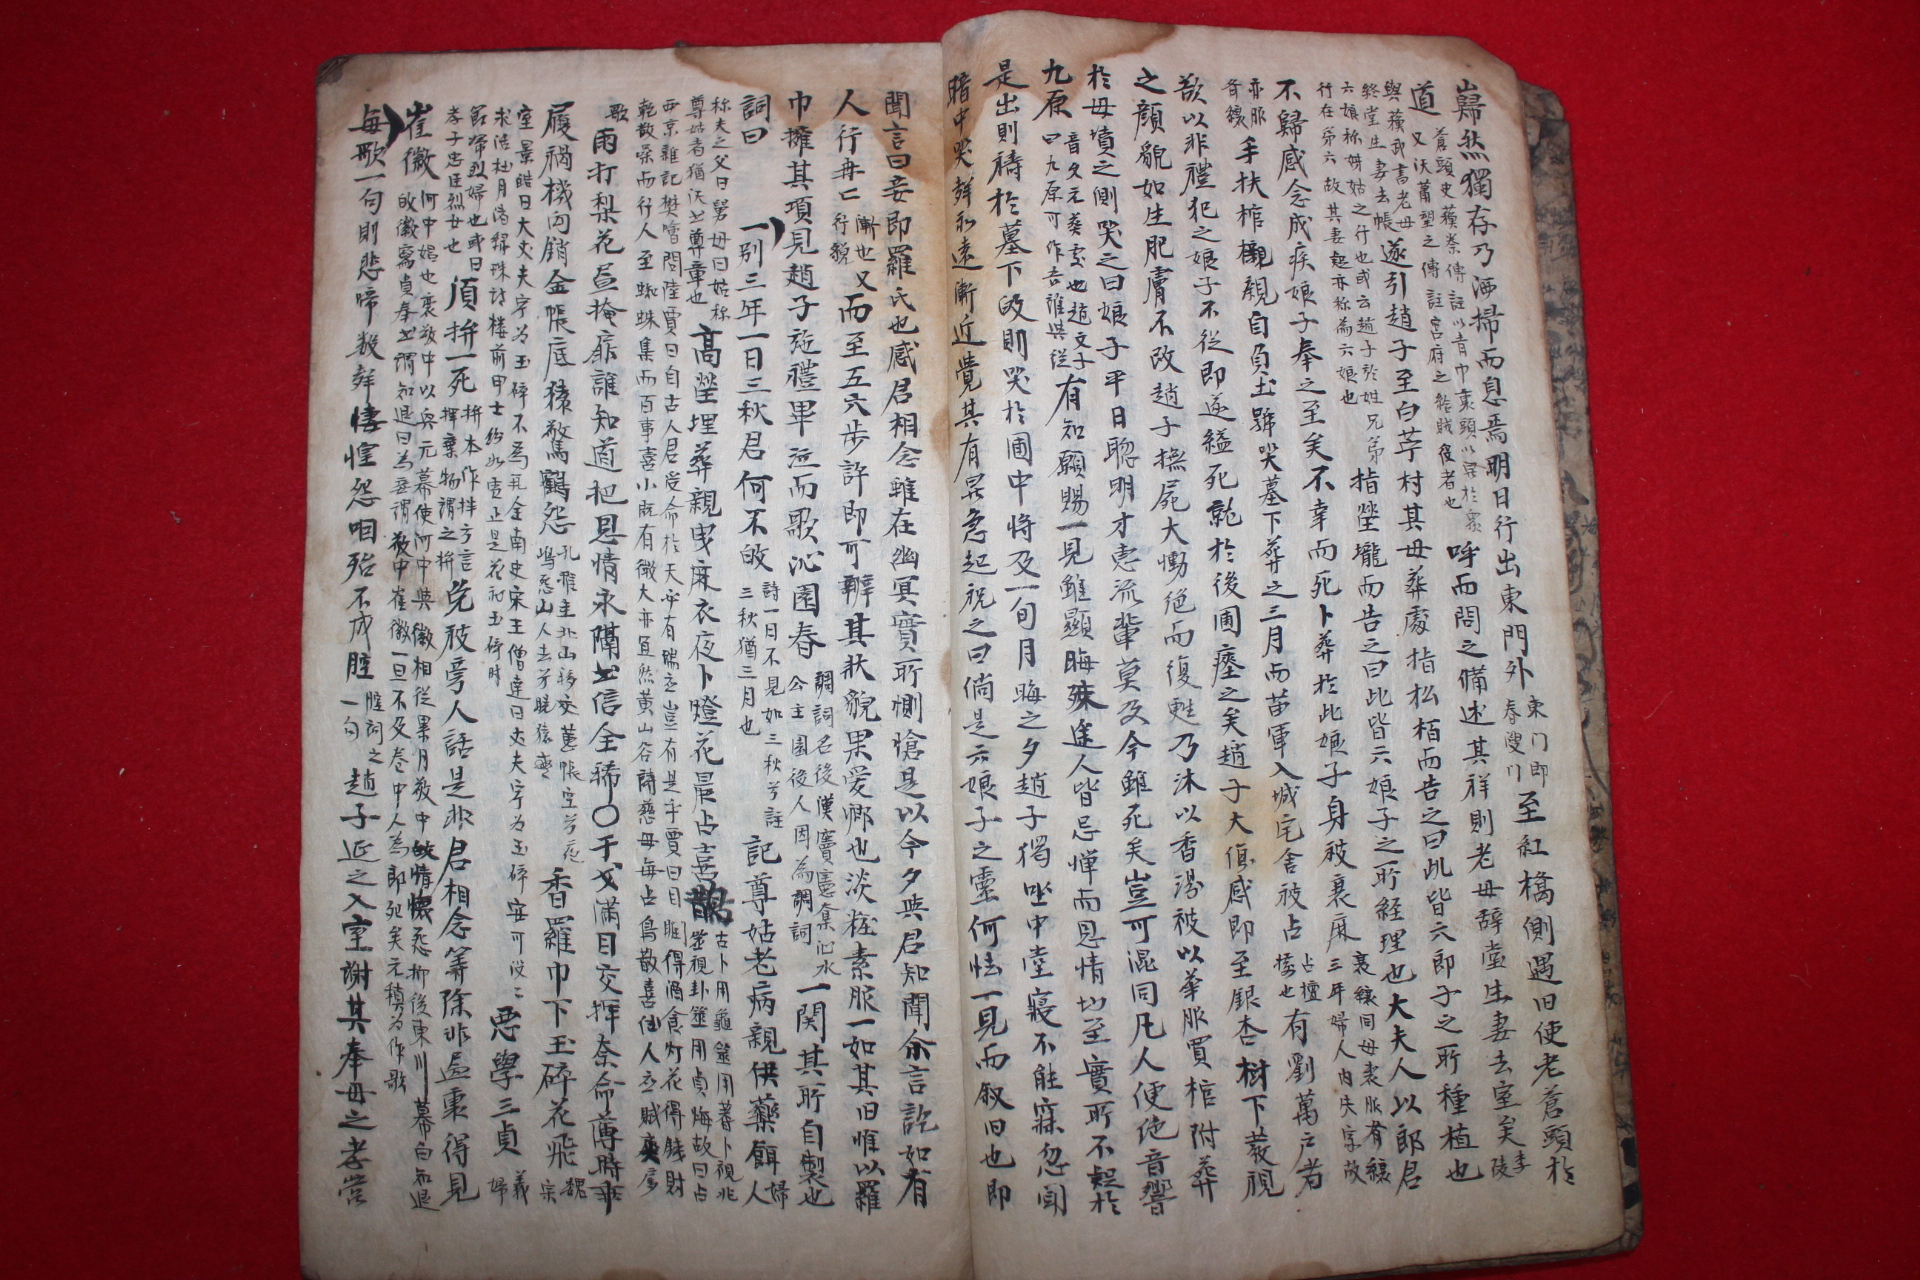 巋然獨存乃洒掃而息焉明日行出東門外東门即春溲门至紅橋側遇旧使老蒼頭於
道蒼頭史蘓秦傳註以青巾裹頭以异於衆又汱蕭望之傳註官府之給賎役者也呼而問之備述其祥則老母辞堂生妻去室矣李陵
與蘓武書老母終堂生妻去帳遂引趙子至白苧村其母葬處指松栢而告之曰此皆六郎子之所種植也
六娘称姊姑之什也或云趙子於姓兄弟行在第六故其妻亦称為六娘也指塋壠而告之曰此皆六娘子之所経理也大夫人以郎君
不歸感念成疾娘子奉之至矣不幸而死卜葬於此娘子身被衰麻衰縗同母丧服有縗三年婦人内夫字故
亦服斉縗手扶棺櫬親自負土號哭墓下葬之三月而苗軍入城宅舍被占占擅據也有劉萬户者
欲以非禮犯之娘子不從即遂縊死就於後圃瘞之矣趙子大傷感即至銀杏樹下發視
之顔貌如生肥膚不改趙子撫屍大慟绝而復甦乃沐以香湯被以華服買棺附葬
於母墳之側哭之曰娘子平日聡明才恵流輩莫及今雖死矣豈可混同凡人便绝音響
九原音夕元葬處也趙文子曰九原可作吾誰與從有知願賜一見雖顯晦殊途人皆忌憚而恩情切至實所不疑於
是出則禱於墓下皈則哭於圃中将及一旬月晦之夕趙子獨坐中堂寢不能寐忽聞
暗中哭聲初遠漸近覺其有异急起祝之曰倘是六娘子之靈何怯一見而叙旧也即
聞言曰妾即羅氏也感君相念雖在幽冥實所惻愴是以今夕與君知聞余言訖如有
人行冉冉漸也又行貌而至五六步許即可辨其狀貌果愛卿也淡粧素服一如其旧惟以羅
巾擁其項見趙子施禮畢泣而歌沁園春調詞名後漢竇憲奪沁水公主園後人因為調詞一関其所自製也
詞曰一别三年一日三秋君何不皈詩一日不見如三秋兮註三秋猶三月也記尊姑老病親供藥餌婦人
称夫之父曰舅母曰姑称尊姑者猶汱之尊章也高塋埋葬親曳麻衣夜卜燈花晨占喜鵲古卜用龜筮用蓍卜視兆筮視卦筮用貞悔故曰占
西京雜記樊噲問陸賈曰自古人君受命於天必有瑞应豈有是乎賈曰目𥆧得酒食灯花得錢財乾散噪而行人至蜘蛛集而百事喜小既有徵大亦宜然黄山谷詩慈母每占烏散喜
雨打梨花昼掩扉誰知道把恩情永隔書信全稀〇干戈滿目交揮奈命薄時乖
履禍機向銷金帳底猿驚鶴怨孔稚圭北山移文蕙帳空兮夜鶴怨山人去兮曉猿驚香羅巾下玉碎花飛魏宗
室景皓曰大丈夫寧為玉碎不為瓦全南史宋王僧達曰丈夫寧為玉碎安可没没求活杜月湯緑珠詩楼前甲士紛如雪正是花飛玉碎時要學三貞義婦
節婦烈婦也或曰孝子忠臣烈女也須拚一死拚本作拌方言揮棄物謂之拚免被旁人話是非君相念筭除非画裏得見
崔徽何中娼也裴敬中以與元幕使河中與徽相從累月敬中皈情懐怨抑後東川幕白知退皈徽寫真奉書謂知退曰為妾謂敬中崔徽一旦不及卷中人為郎死矣元稹為作歌
每歌一句則悲啼數聲悽惶怨咽殆不成腔腔詞之一句趙子延之入室謝其奉母之孝営